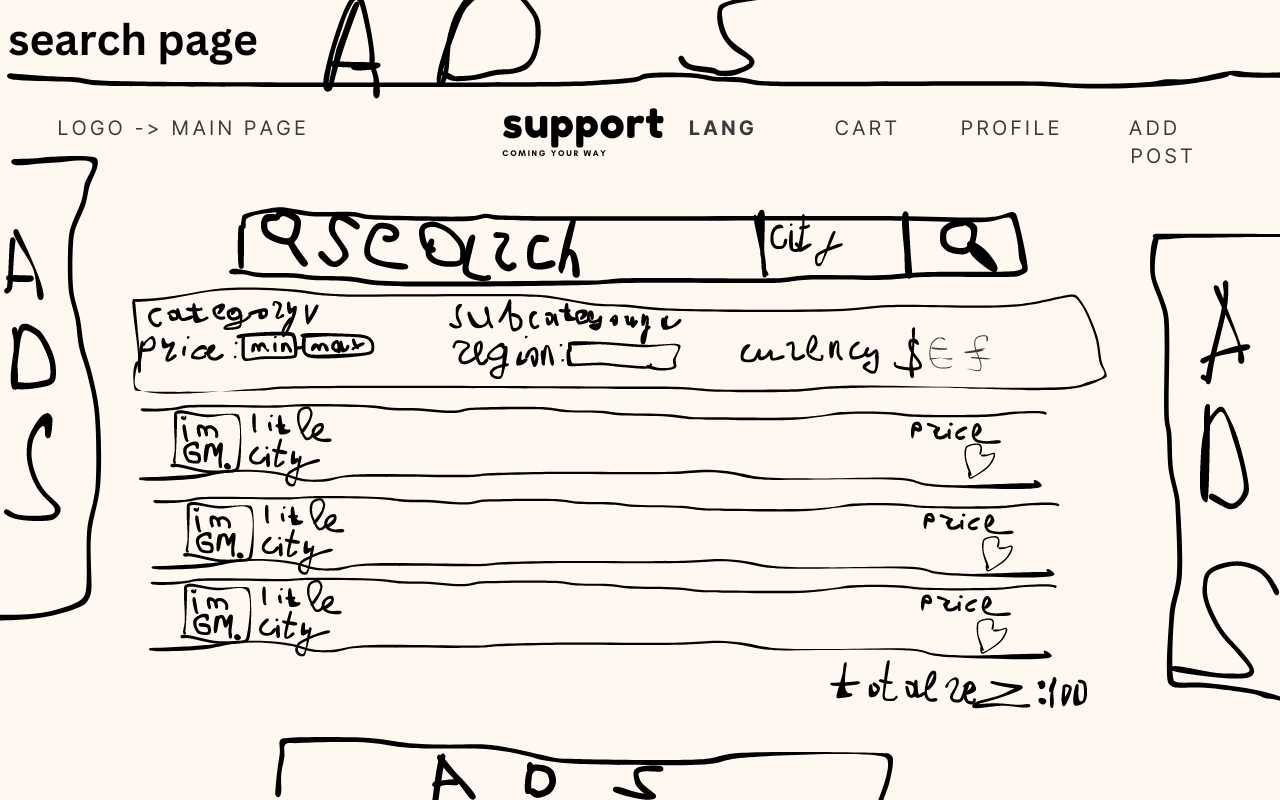 search page
ADS
LOGO -> MAIN PAGE
support
COMING YOUR WAY
LANG
CART
PROFILE
ADD
POST
ADS
search
city
ADS
category
subcategory
price: min - max
region:
currency $ € £
im
GM.
title
city
price
im
GM.
title
city
price
im
GM.
title
city
price
total rez:100
ADS